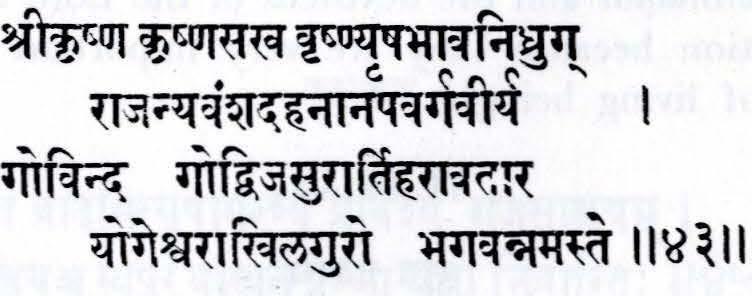 श्रीकृष्ण कृष्णसख वृष्ण्यृषभावनिध्रुग्
राजन्यवंशदहनानपवर्गवीर्य ।
गोविन्द गोद्विजसुरार्तिहरावतार
योगेश्वराखिलगुरो भगवन्नमस्ते ॥४३॥